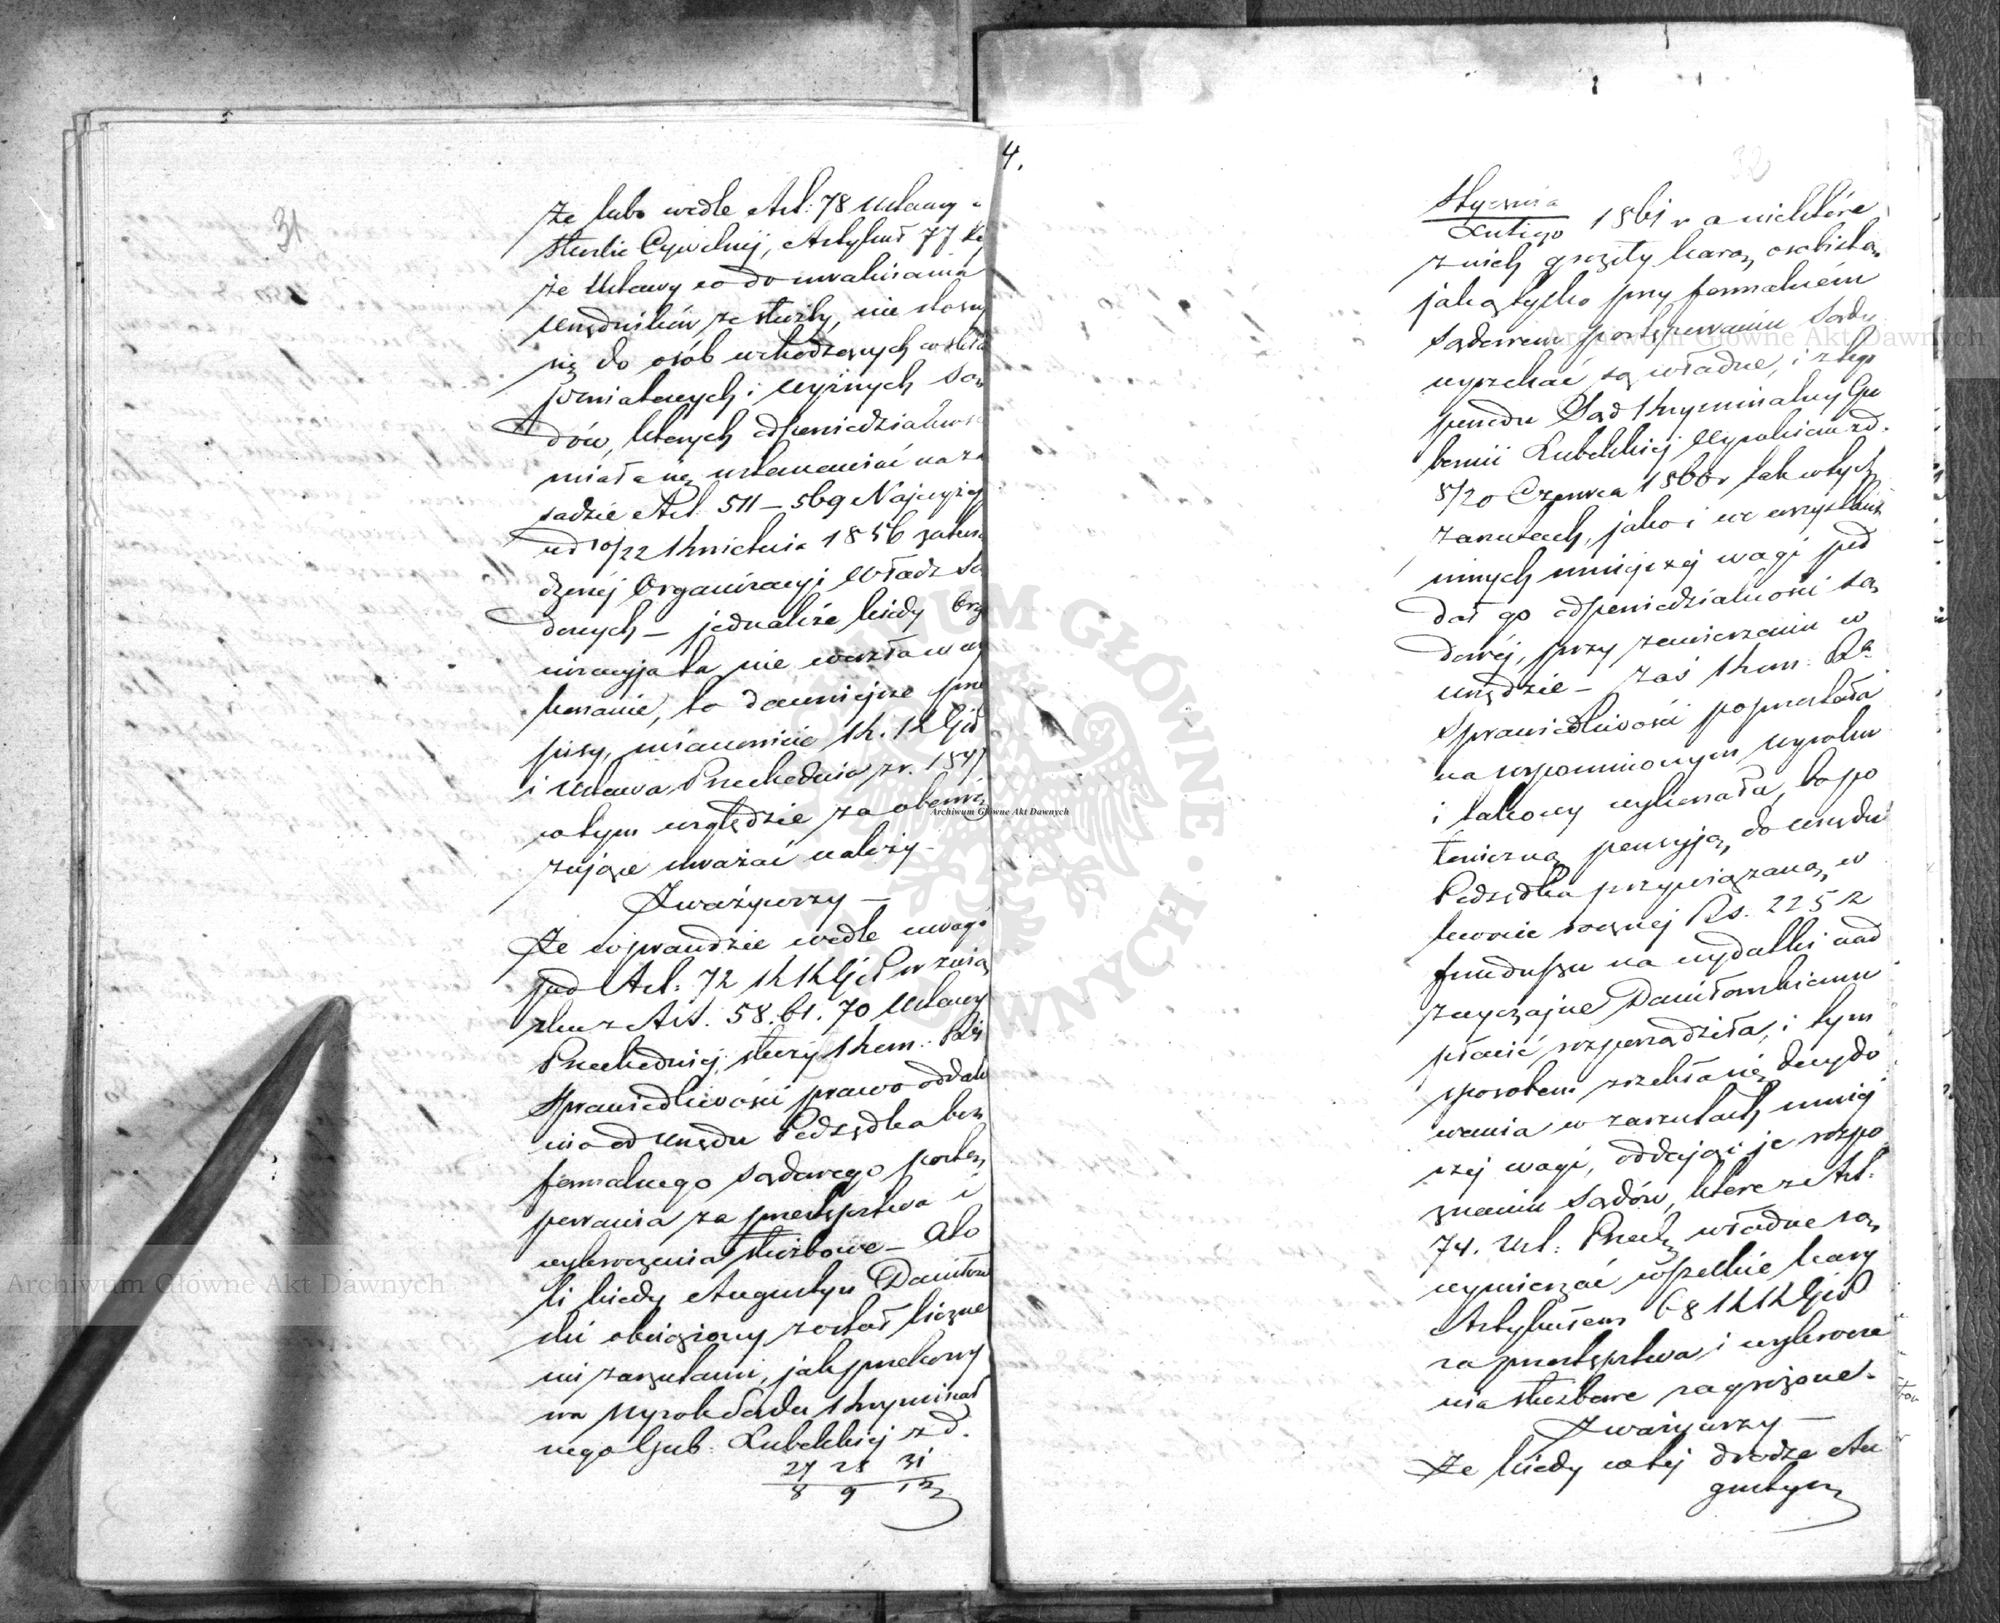 31
Że lubo wedle Art: 78 Ustawy o
służbie Cywilnej, Artykuł 77 tej
że Ustawy co do uwalniania
urzędników ze służby, nie stosuje
się do osób wchodzących w skład
powiatowych i wyższych Są
dów, których odpowiedzialność
miała się ustanawiać na za
sadzie Art 511 – 569 Najwyżej
ud 10/22 Kwietnia 1856 zatwier
dzonej Organizacyi Władz Są
dowych – jednakże kiedy Orga
nizacyja ta nie weszła w wy
konanie, to dawniejsze prze
pisy, mianowicie K. K. G. i P.
i Ustawa Przechodnia z r. 1847
w tym względzie za obowią
zujące uważać należy –
Zważywszy –
Że wprawdzie wedle uwagi
pod Art: 72 K K G i P w związ
ku z Art. 58. 61. 70 Ustawy
Przechodniej, służy Kom: Rz:
Sprawiedliwości prawo oddale
nia od urzędu Podsędka bez
formalnego sądowego postę
powania za przestępstwa i
wykroczenia służbowe – Ato
li kiedy Augustyn Daniłow
ski obciążony został liczne
mi zarzutami, jak przekony
wa Wyrok Sądu Kryminal
nego Gub: Lubelskiej z d.
27 28 31
8 9 12
4.
32
Stycznia
Lutego 1861 r a niektóre
z nich grożły karą osobistą
jaką tylko przy formalném
sądowem postępowaniu Sądy
wyrzekać są władne, i z tego
powodu Sąd Kryminalny Gu
bernii Lubelskiej Wyrokiem z d.
8/20 Czerwca 1860 r tak w tych
zarzutach, jako i we wszystkich
innych mniejszej wagi pod
dał go odpowiedzialności są
dowéj, przy zawieszeniu w
urzędzie – zaś Kom: Rz:
Sprawiedliwości poprzestała
na wspomnionym wyroku
i takowy wykonała, bo po
łowiczną pensyją, do urzędu
Podsędka przywiązaną, w
kwocie rocznej Rs. 225 z
funduszu na wydatki nad
zwyczajne Daniłowskiemu
płacić rozporządziła, i tym
sposobem zrzekła się decydo
wania w zarzutach mniej
szej wagi, oddając i je rozpo
znaniu Sądów, które z Art:
74. Ust: Przech: władne są
wymierzać wszelkie kary
Artykułem 68 K K G i P
za przestępstwa i wykrocze
nia służbowe zagrożone –
Zważywszy –
Że kiedy w tej drodze Au
gustyn
Archiwum Główne Akt Dawnych
Archiwum Główne Akt Dawnych
Archiwum Główne Akt Dawnych
ARCHIWUM GŁÓWNE AKT DAWNYCH